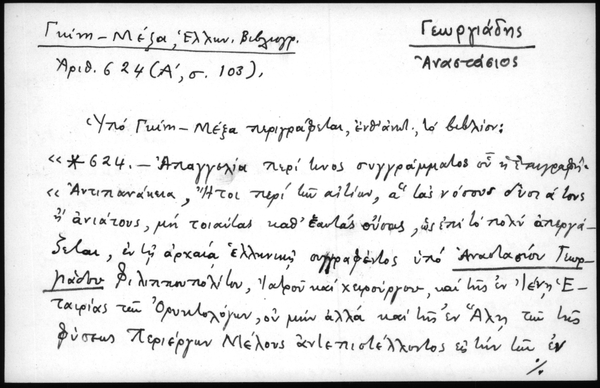 Γκίνη - Μέξα, Ἑλλην. Βιβλιογρ.
Ἀριθ. 624 (Α΄, σ. 103).
Γεωργιάδης
Ἀναστάσιος
Ὑπό Γκίνη - Μέξα περιγράφεται, ἐνθ' ἀνωτ., τό βιβλίον:
« * 624. - Ἀπαγγελία περί τινος συγγράμματος οὗ ἡ ἐπιγραφή·
« Ἀντιπανάκεια, Ἤτοι περί τῶν αἰτίων, ἅ τάς νόσους δυσιάτους
ἤ ἀνιάτους, μή τοιαύτας καθ' ἑαυτάς οὔσας, ὡς ἐπί τό πολύ ἀπεργά-
ζεται, ἐν τῇ ἀρχαίᾳ Ἑλληνικῇ συγγραφέντος ὑπό Ἀναστασίου Γεωρ-
γιάδου Φιλιππουπολίτου, Ἰατροῦ καί χειρούργου, καί τῆς ἐν Ἰένῃ Ἑ-
ταιρίας τῶν Ὀρυκτολόγων, οὐ μήν ἀλλά καί τῆς ἐν Ἅλῃ τῶν τῆς
φύσεως Περιέργων Μέλους ἀντεπιστέλλοντος εἰς τήν τῶν ἐν
./.